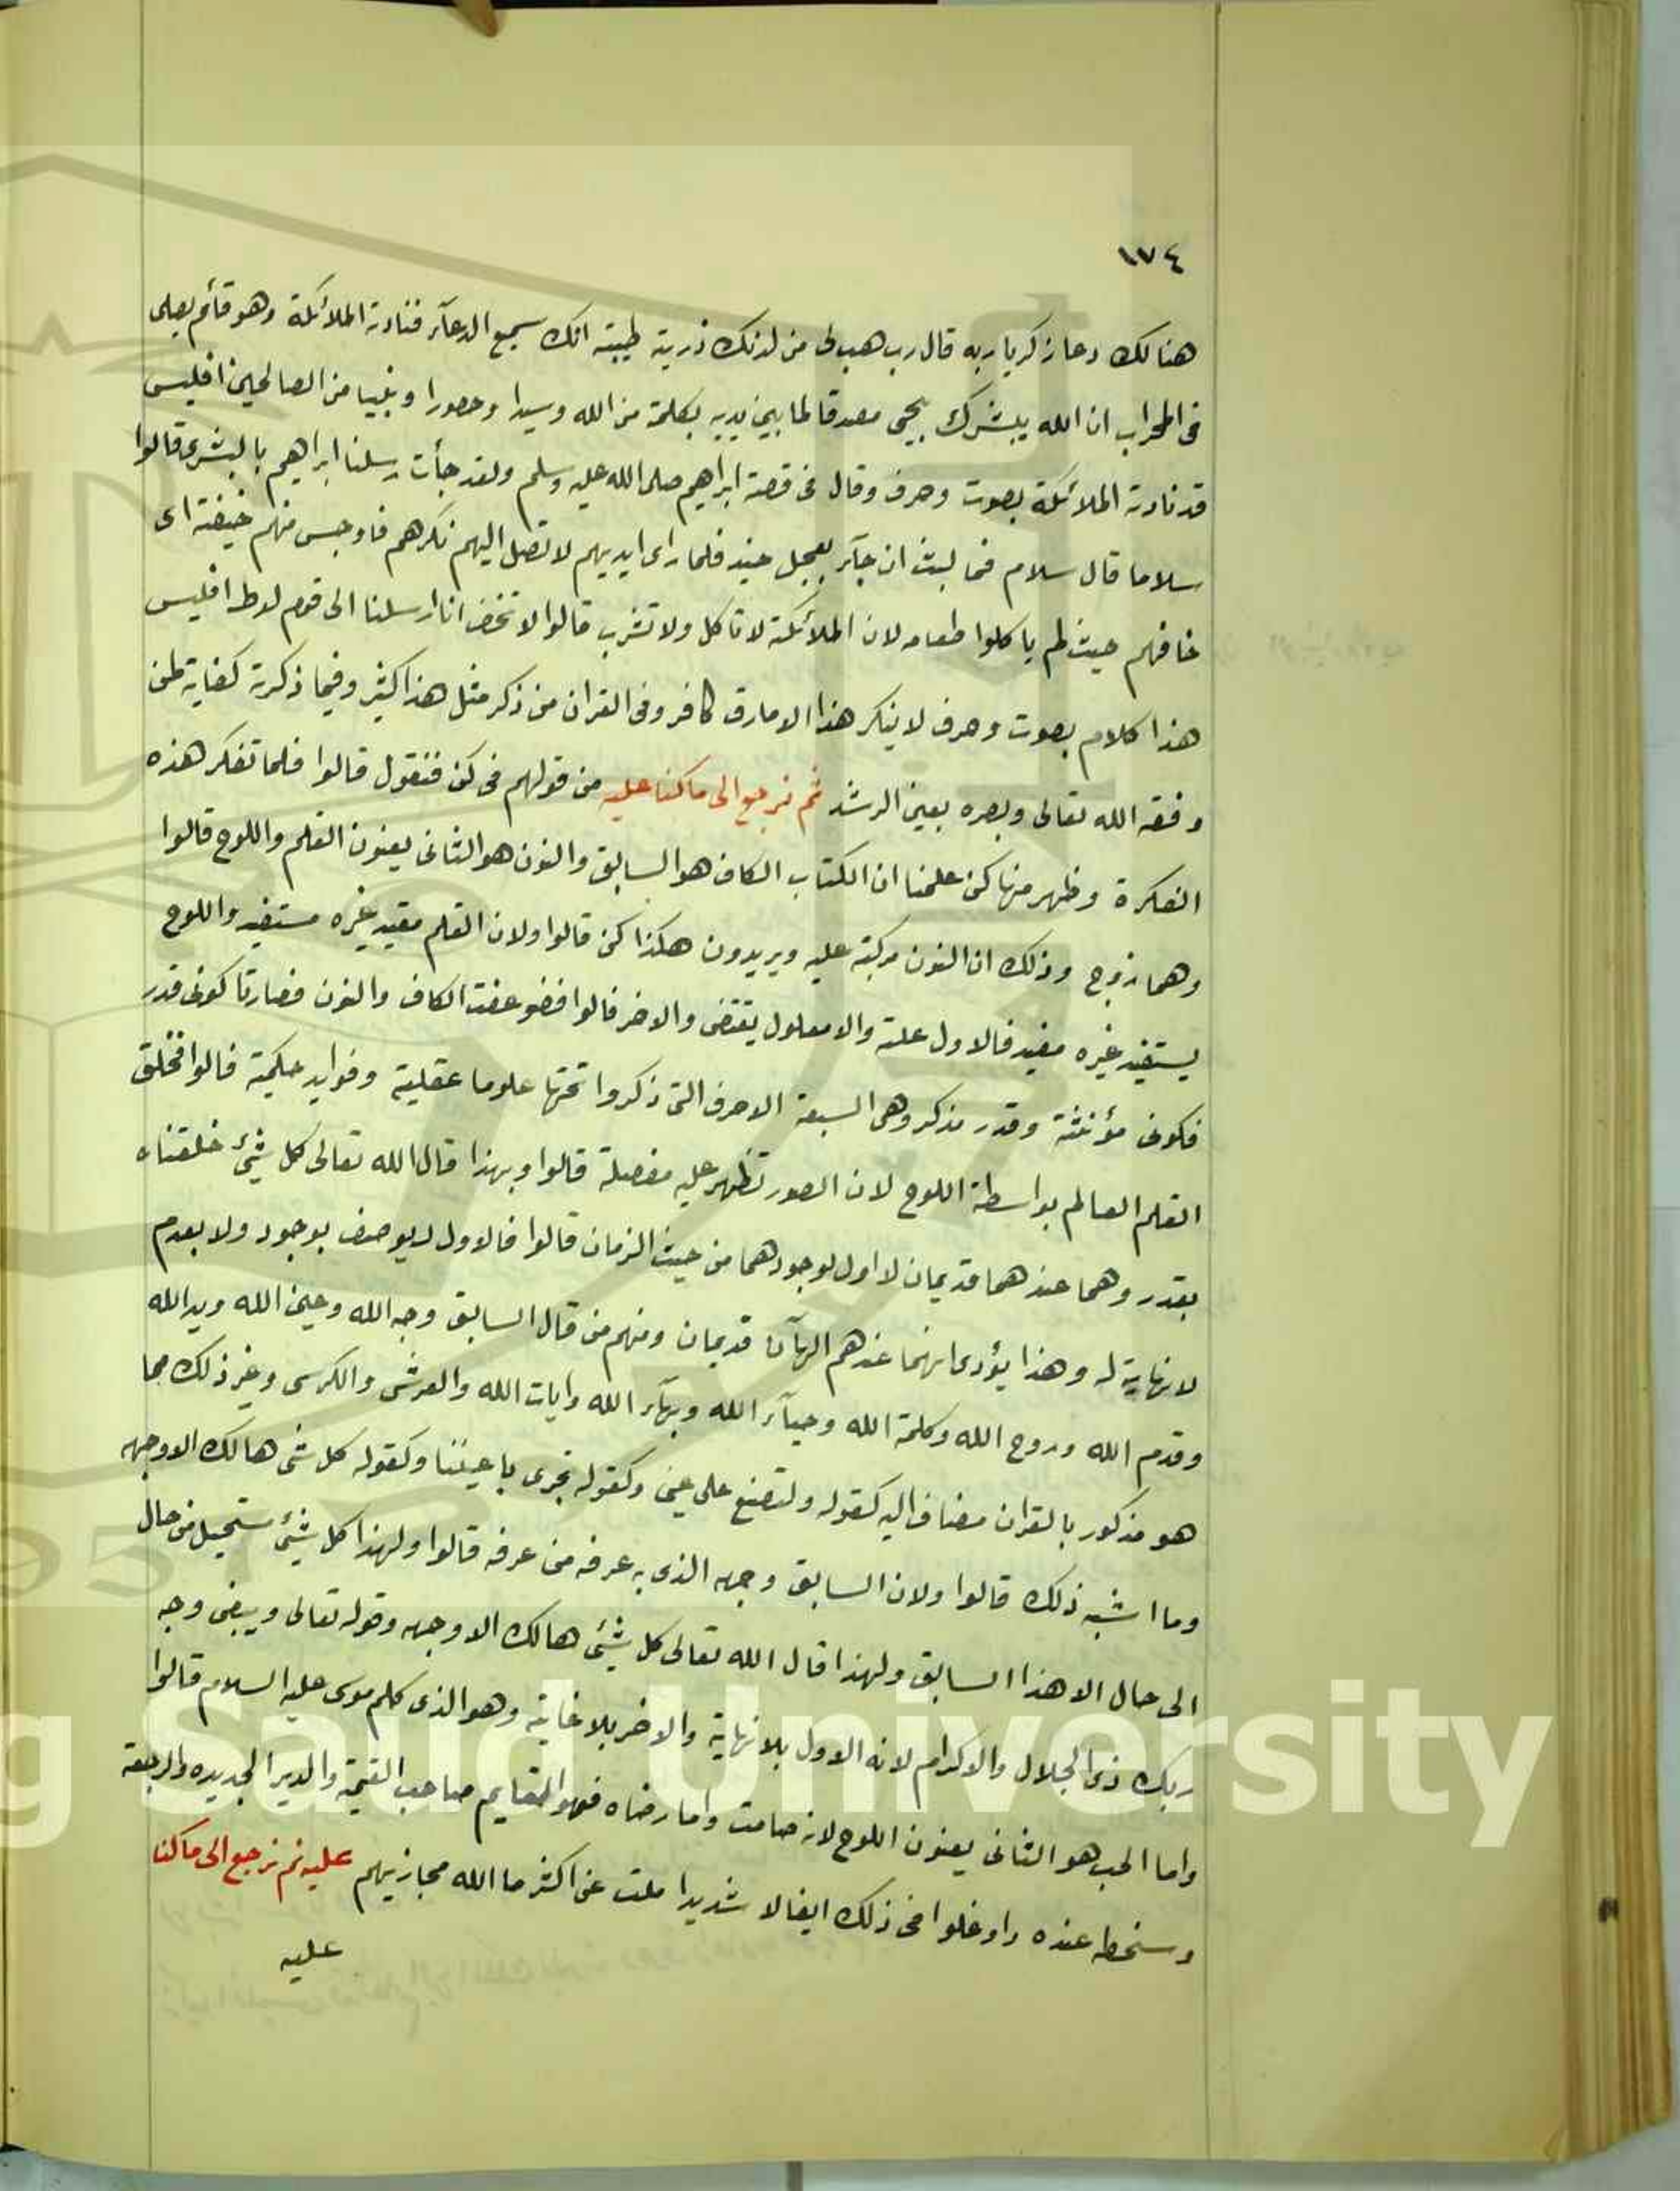 ١٧٤
هنالك دعا زكريا ربه قال رب هب لى من لدنك ذرية طيبة انك سميع الدعآء فنادته الملائكة وهو قائم يصلى
فى المحراب ان الله يبشرك بيحيى مصدقا لما بين يديه بكلمة من الله وسيدا وحصورا ونبيا من الصالحين افليس
قد نادته الملائكة بصوت وحرف وقال فى قصة ابراهيم صلى الله عليه وسلم ولقد جأت رسلنا ابراهيم بالبشرى قالوا
سلاما قال سلام فما لبث ان جآء بعجل حنيذ فلما راى ايديهم لا تصل اليهم نكرهم فاوجس منهم خيفة اى
خافهم حيث لم ياكلوا طعامه لان الملائكة لا تاكل ولا تشرب قالوا لا تخف انا ارسلنا الى قوم لوط افليس
هذا كلام بصوت وحرف لا ينكر هذا الا مارق كافر وفى القران من ذكر مثل هذا كثير وفيما ذكرته كفاية لمن
وفقه الله تعالى وبصره بعين الرشد ثم نرجع الى ما كنا عليه من قولهم فى كن فنقول قالوا فلما تفكر هذه
الفكرة وظهر منها كن علمنا ان الكتاب الكاف هو السابق والنون هو الثانى يعنون القلم واللوح قالوا
وهما زوج وذلك ان النون مركبة عليه ويريدون هكذا كن قالوا ولان القلم مقيد غيره مستفيد واللوح
يستفيد غيره مفيد فالاول علة والا معلول يقتضى والاخر قالوا فضوعفت الكاف والنون فصارتا كونى قدر
فكونى مؤنثة وقدر مذكر وهى السبعة الاحرف التى ذكروا تحتها علوما عقلية وفوايد حكمية قالوا فخلق
القلم العالم بواسطة اللوح لان الصور تظهر عليه مفصلة قالوا وبهذا قال الله تعالى كل شئ خلقناه
بقدر وهما عندهما قديمان لا اول لوجودهما من حيث الزمان قالوا فالاول لا يوصف بوجود ولا بعدم
لا نهاية له وهذا يؤدى انهما عندهم الهآن قديمان ومنهم من قال السابق وجه الله وعين الله ويد الله
وقدم الله وروح الله وكلمة الله وحيآء الله وبهآء الله وايات الله والعرش والكرسى وغير ذلك مما
هو مذكور بالقران مضاف اليه كقوله ولتصنع على عينى وكقوله تجرى باعيننا وكقوله كل شى هالك الا وجهه
وما اشبه ذلك قالوا ولان السابق وجهه الذى به عرفه من عرفه قالوا ولهذا كل شئ ستحيل من حال
الى حال الا هذا السابق ولهذا قال الله تعالى كل شئ هالك الا وجهه وقوله تعالى ويبقى وجه
ربك ذى الجلال والاكرام لانه الاول بلا نهاية والاخر بلا غاية وهو الذى كلم موسى عليه السلام قالوا
واما الحب هو الثانى يعنون اللوح لانه صامت واما رضاه فهو القايم صاحب القيمة والدير الجديده والرجعة
وسخطه عنده واوغلوا فى ذلك ايغالا شديدا ملت عن اكثر ما الله مجازيهم عليه ثم نرجع الى ما كنا
عليه
King Saud University
1957